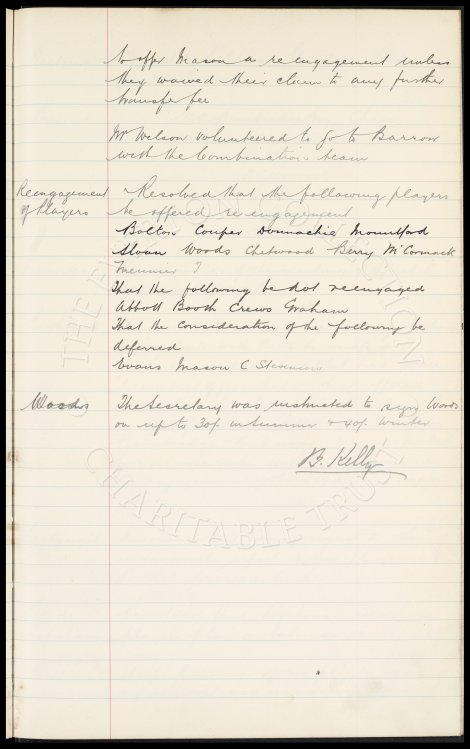 to offer Mason a re engagement unless
they waived their claim to any further
transfer fee
Mr Wilson volunteered to go to Barrow
with the Combination team
Reengagement of Players
Resolved that the following players
be offered re engagement
Bolton Couper Donnachie Mountford
Sloan Woods Chetwood Berry McCormack
That the following be not reengaged
Abbott Booth Crews Graham
That the consideration of the following be
deferred
Evans Mason C Stevenson
Woods
The Secretary was instructed to sign Woods
on up to 30/- in Summer & 40/- Winter
B. Kelly
THE EVERTON COLLECTION
CHARITABLE TRUST